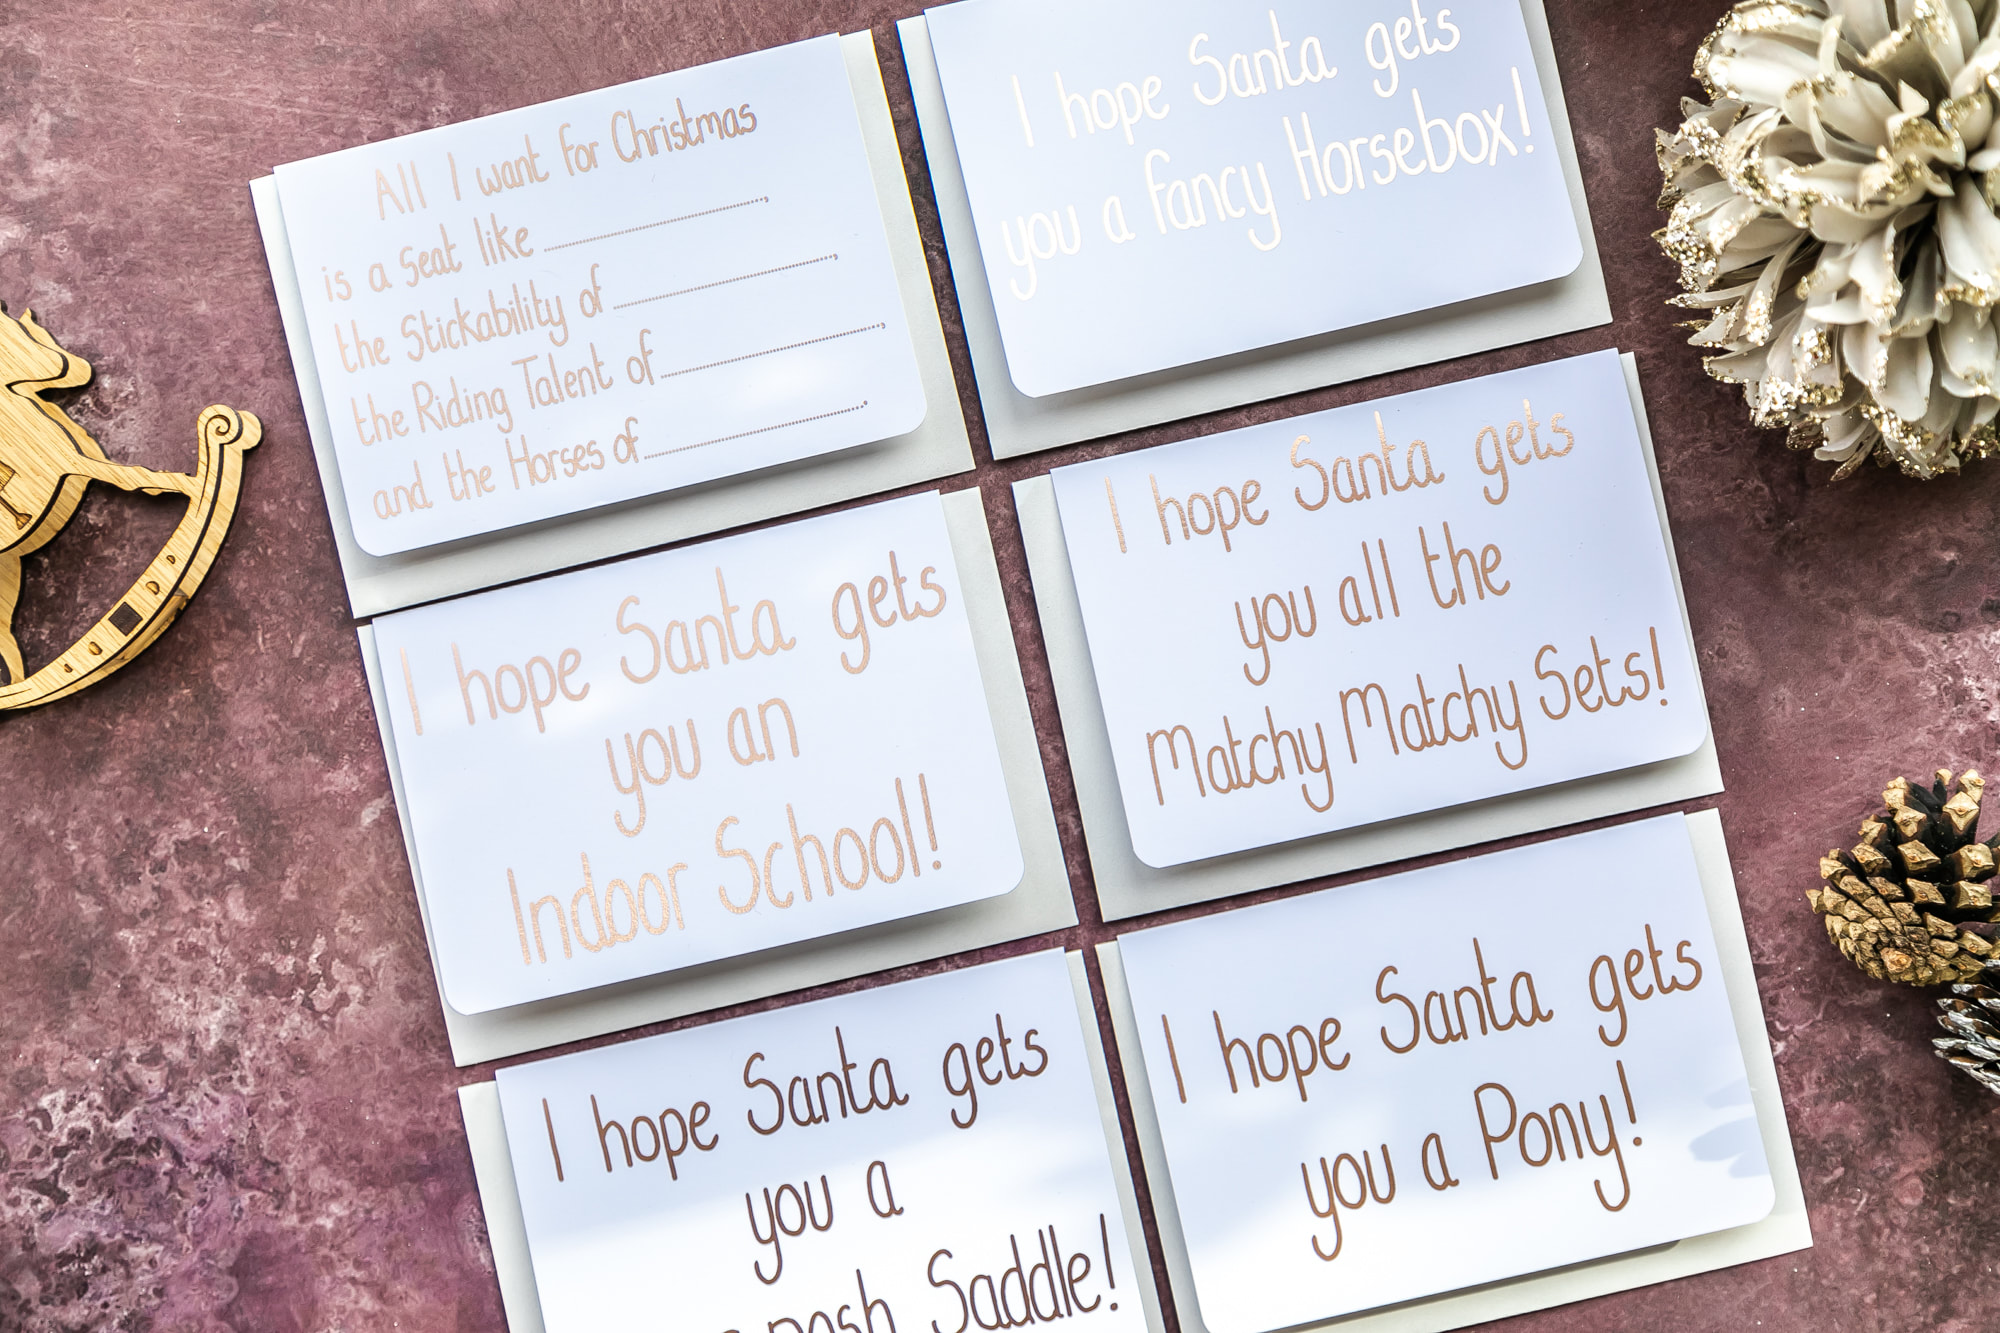 All I want for Christmas
is a Seat like ....................,
the Stickability of ....................,
the Riding Talent of ....................,
and the Horses of ....................
I hope Santa gets
you a fancy Horsebox!
I hope Santa gets
you an
Indoor School!
I hope Santa gets
you all the
Matchy Matchy Sets!
I hope Santa gets
you a
posh Saddle!
I hope Santa gets
you a Pony!